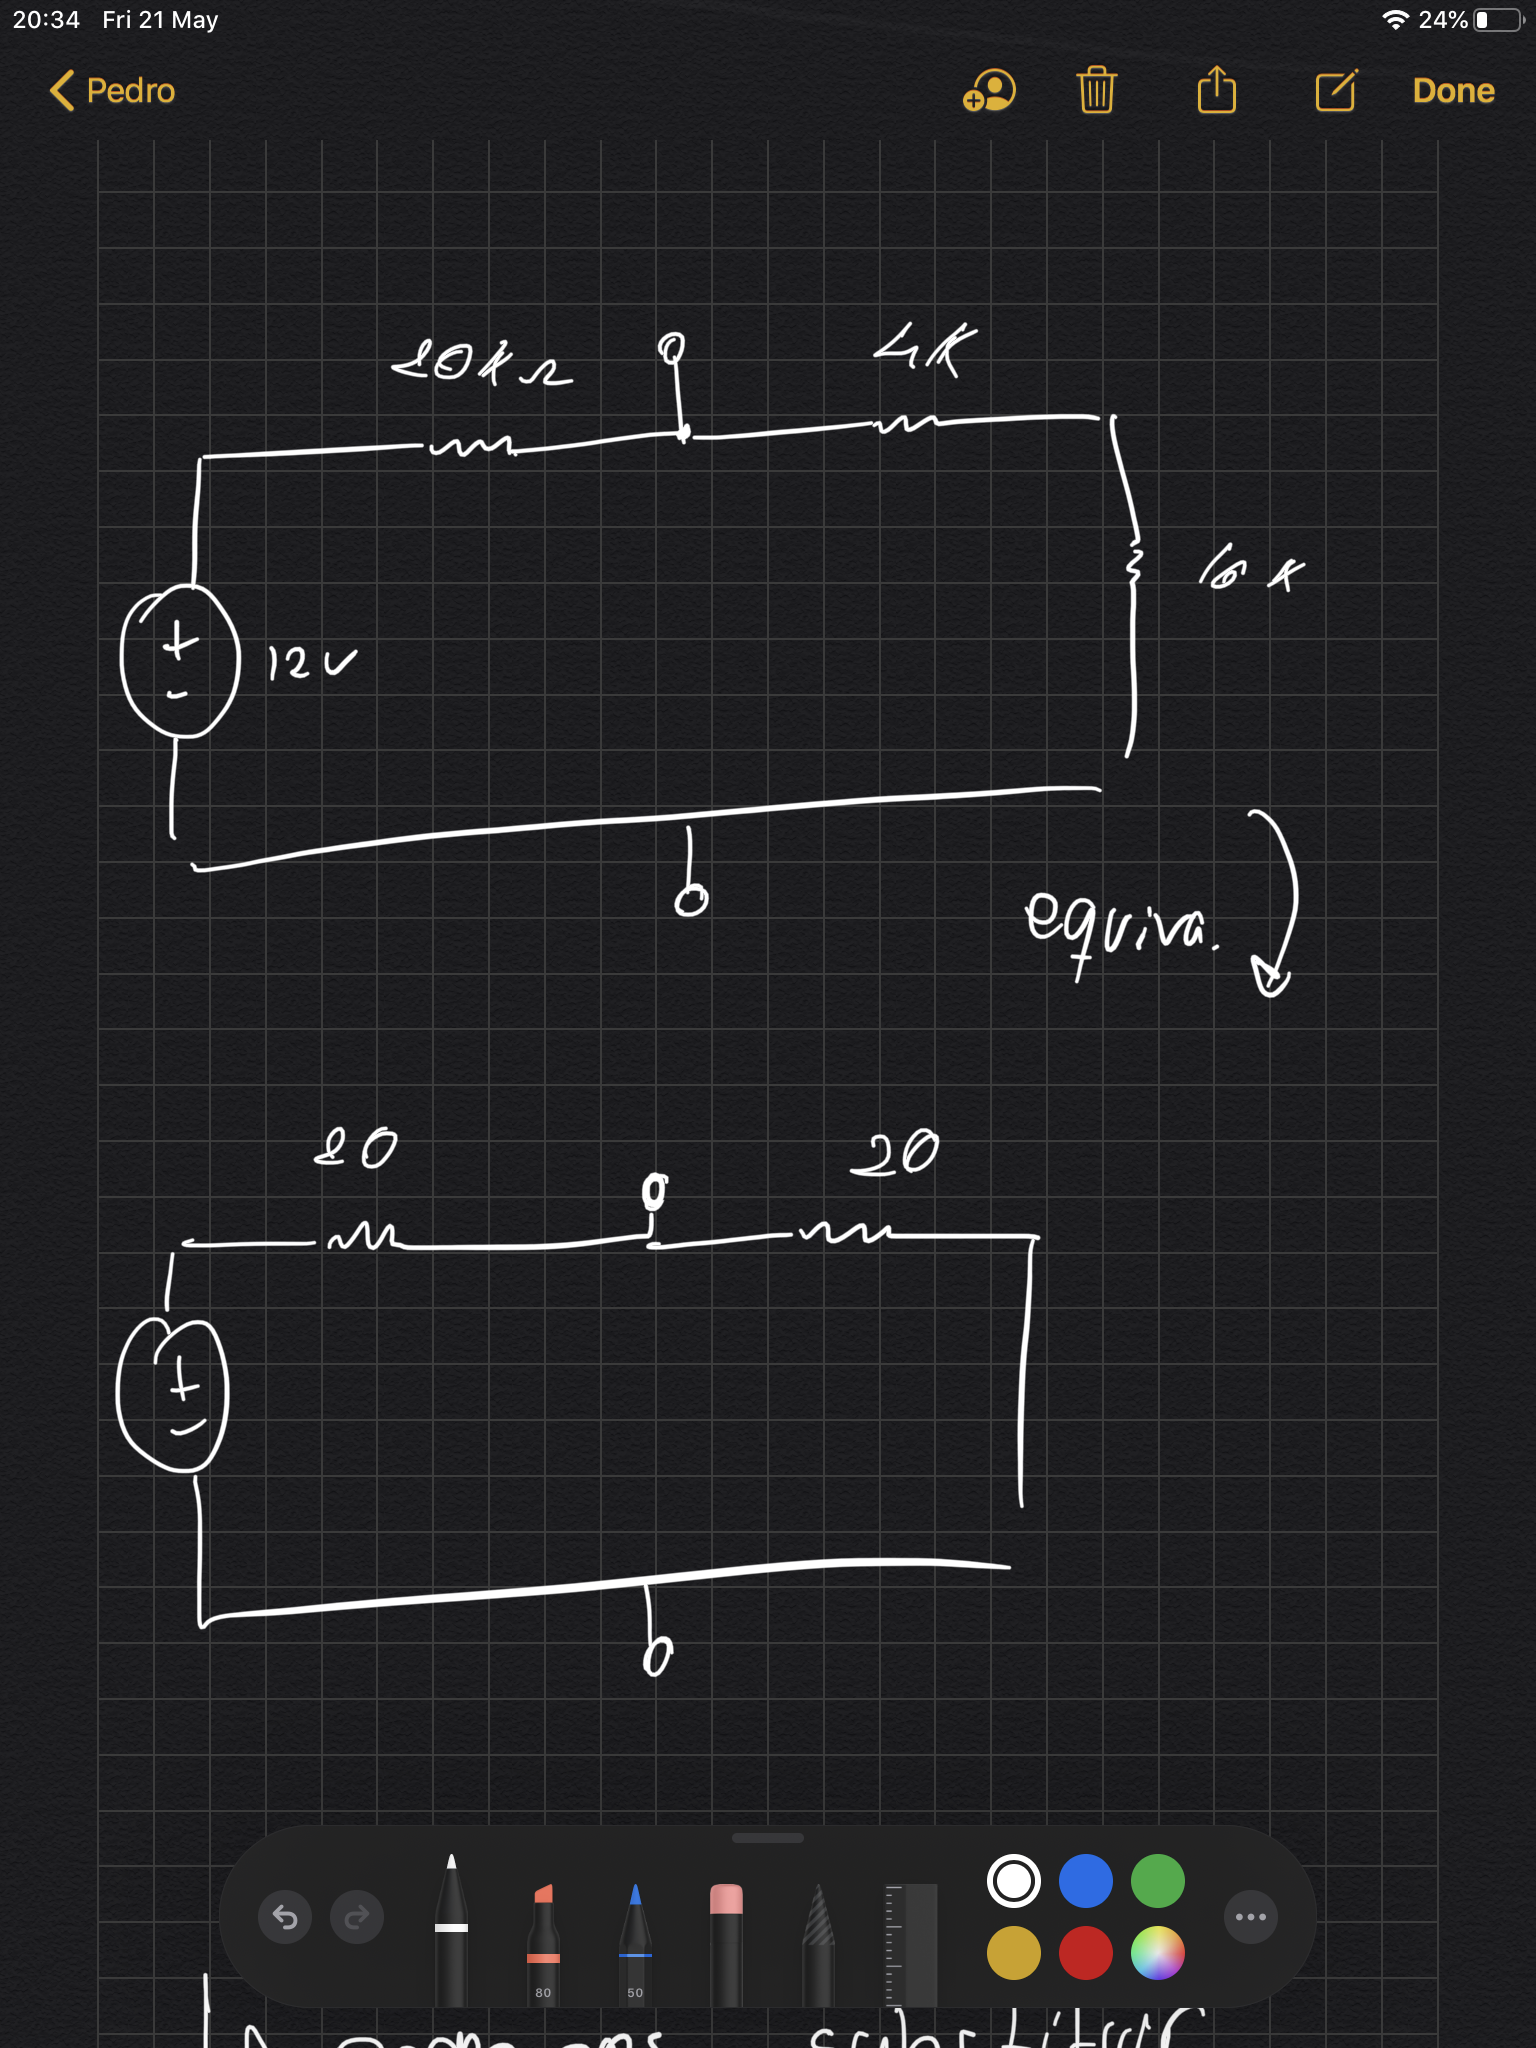 20:34 Fri 21 May 24%
Pedro Done
20kΩ 4K
16 K
12V
equiva.
20 20
80 50
substituir